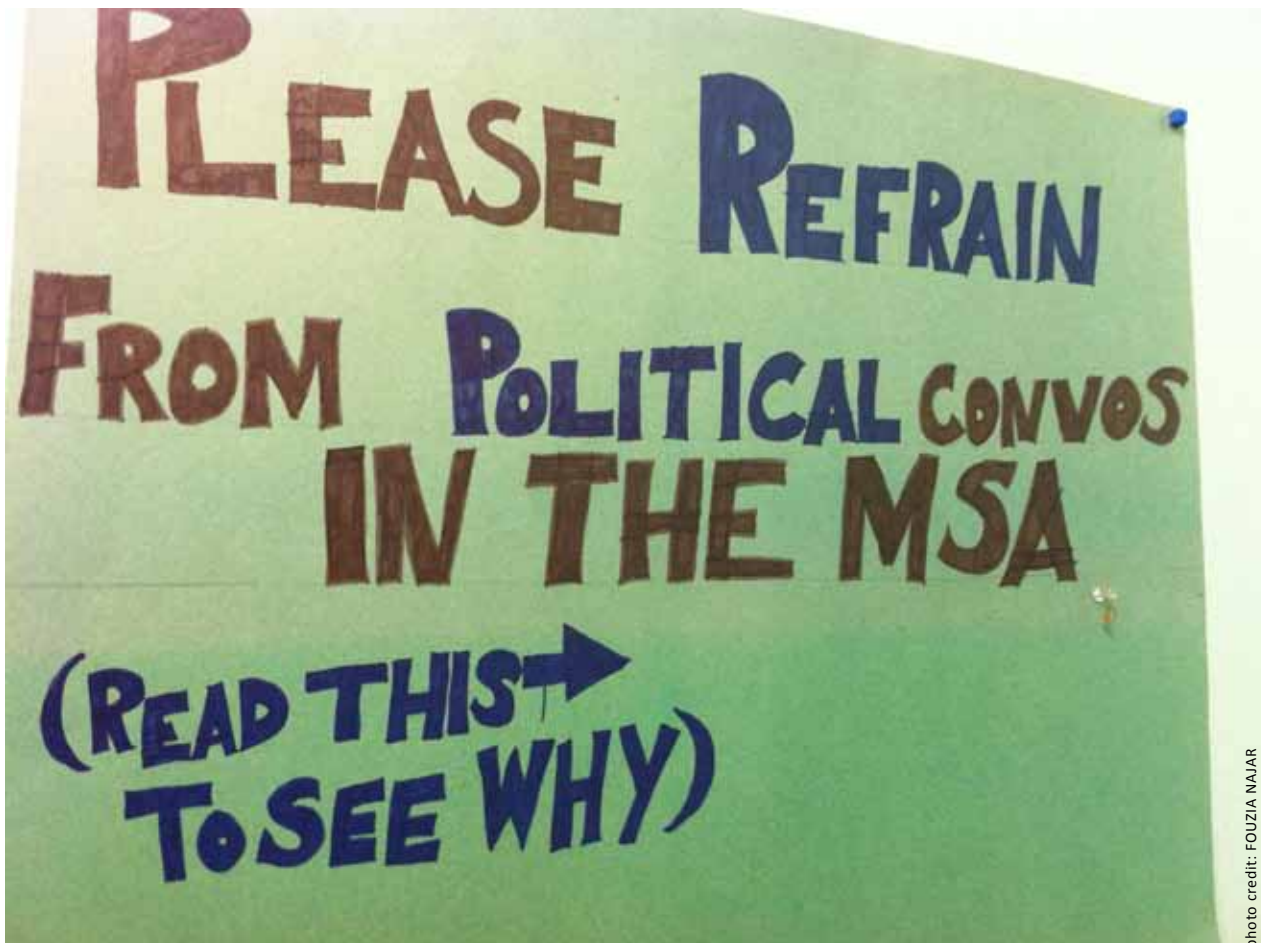 PLEASE REFRAIN
FROM POLITICAL CONVOS
IN THE MSA
(READ THIS→
TO SEE WHY)
photo credit: FOUZIA NAJAR